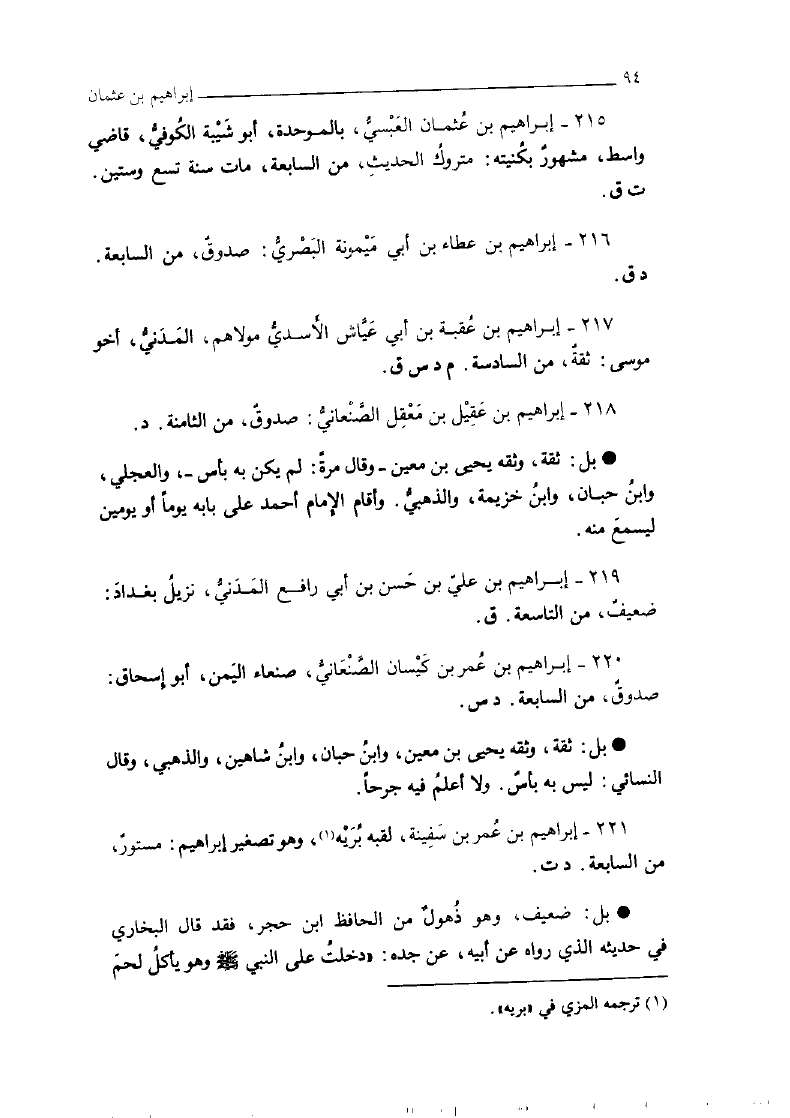 ٩٤ إبراهيم بن عثمان
٢١٥ - إبراهيم بن عُثمان العَبْسيُّ، بالموحدة، أبو شَيْبة الكُوفيُّ، قاضي
واسط، مشهورٌ بكُنيته: متروكُ الحديثِ، من السابعة، مات سنة تسع وستين.
ت ق.
٢١٦ - إبراهيم بن عطاء بن أبي مَيْمونة البَصْريُّ: صدوقٌ، من السابعة.
د ق.
٢١٧ - إبراهيم بن عُقبة بن أبي عَيَّاش الأَسديُّ مولاهم، المَدَنيُّ، أخو
موسى: ثقةٌ، من السادسة. م د س ق.
٢١٨ - إبراهيم بن عَقِيْل بن مَعْقِل الصَّنْعانيُّ: صدوقٌ، من الثامنة. د.
● بل: ثقة، وثقه يحيى بن معين - وقال مرةً: لم يكن به بأس -، والعجلي،
وابنُ حبان، وابنُ خزيمة، والذهبيُّ. وأقام الإمام أحمد على بابه يوماً أو يومين
ليسمعَ منه.
٢١٩ - إبراهيم بن عليّ بن حَسن بن أبي رافع المَدَنيُّ، نزيلُ بغدادَ:
ضعيفٌ، من التاسعة. ق.
٢٢٠ - إبراهيم بن عُمر بن كَيْسان الصَّنْعَانيُّ، صنعاء اليَمن، أبو إسحاق:
صدوقٌ، من السابعة. د س.
● بل: ثقة، وثقه يحيى بن معين، وابنُ حبان، وابنُ شاهين، والذهبي، وقال
النسائي: ليس به بأسٌ. ولا أعلمُ فيه جرحاً.
٢٢١ - إبراهيم بن عُمر بن سَفِينة، لقبه بُرَيْه(١)، وهو تصغير إبراهيم: مستورٌ،
من السابعة. د ت.
● بل: ضعيف، وهو ذُهولٌ من الحافظ ابن حجر، فقد قال البخاري
في حديثه الذي رواه عن أبيه، عن جده: «دخلتُ على النبي ﷺ وهو يأكلُ لحمَ
(١) ترجمه المزي في «بريه».